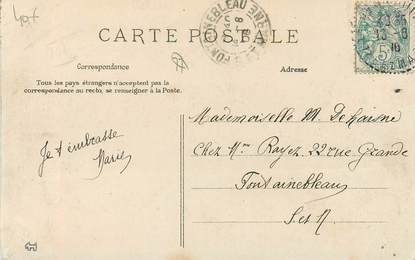 CARTE POSTALE
Correspondance
Adresse
Tous les pays étrangers n'acceptent pas la
correspondance au recto, se renseigner à la Poste.
Je t'embrasse
Marie
Mademoiselle M. Dehaisne
Chez Mme Rayez 22 rue Grande
Fontainebleau
S et M
FONTAINEBLEAU